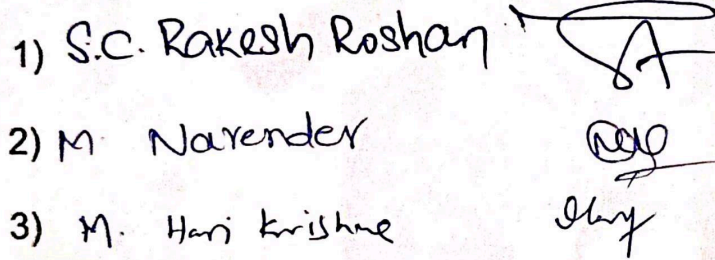 1) S.C. Rakesh Roshan
2) M. Narender
3) M. Hari Krishna